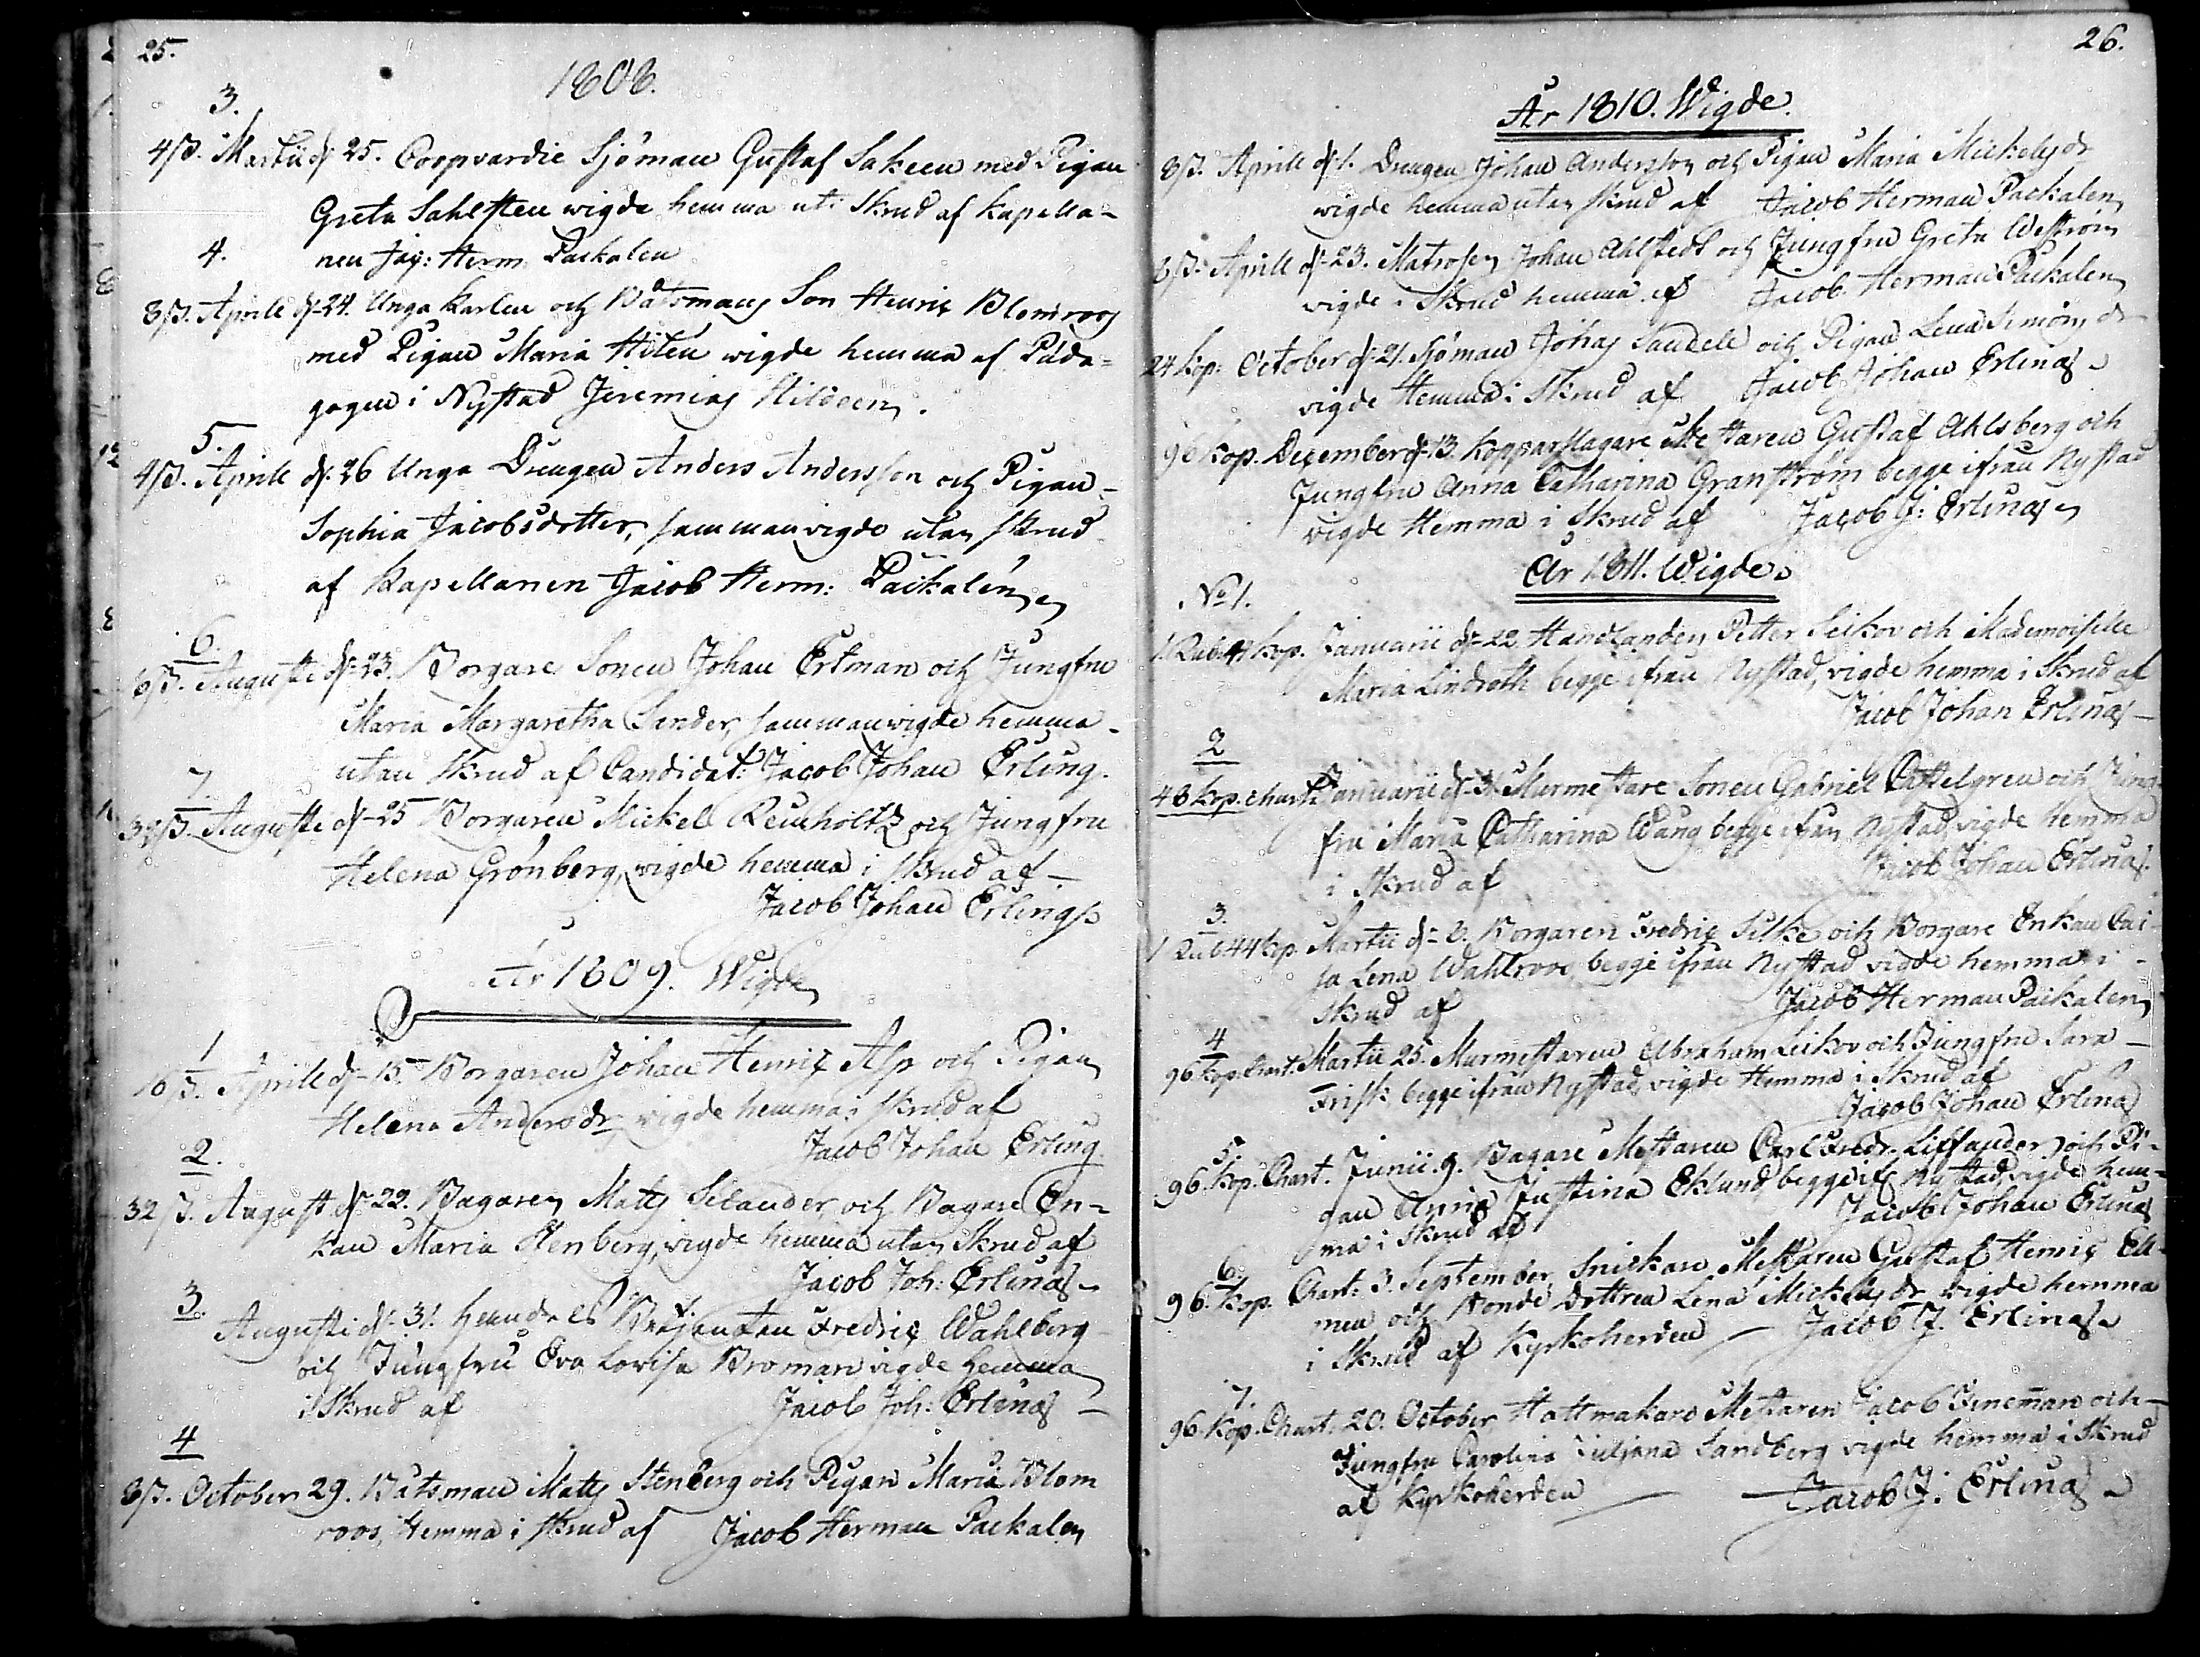 25.
1808.
3.
4ß. Martii d. 25. Coopvardie Sjöman Gustaf Sakeen med Pigan
Greta Sahlsten wigde hemma uti Skrud af Kapella-
nen Jac: Herm. Packalen
4.
8ß. Aprill d. 24. Unga Karlen och Båtsmans Son Henric Blomroos
med Pigan Maria Hiten wigde hemma af Päda-
gogen i Nystad Jeremias Hildeen.
5.
4ß. Aprill d. 26 Unga Drengen Anders Andersson och Pigan
Sophia Jacobsdotter, sammanvigde utan skrud
af Kapellanen Jacob Herm: Packalén
6.
8ß. Augusti d. 23. Borgare Sonen Johan Ertman och Jungfru
Maria Margaretha Sander, sammanvigde hemma
utan Skrud af Candidat: Jacob Johan Erling.
7.
32ß. Augusti d. 25 Borgaren Mickel Reinholtz och Jungfru
Helena Grönberg, vigde hemma i skrud af
Jacob Johan Erling
År 1809. Wigde
1
16ß. Aprill d. 15. Borgaren Johan Henric Alp och Pigan
Helena Andersdr vigde hemma i skrud af
Jacob Johan Erling
2.
32ß. August d. 22. Bagaren Matts Selander och Bagare En-
kan Maria Stenberg, vigde hemma utan Skrud af
Jacob Joh: Erlings
3.
Augusti d. 31. Handels Fredric Wahlberg
och Jungfru Eva Lovisa Broman vigde hemma
i Skrud af Jacob Joh: Erlings
4
8ß. October 29. Båtsman Matts Stenberg och Pigan Maria Blom
roos, Hemma i skrud af Jacob Herman Packalen
26.
År 1810. Wigde.
8ß. Aprill d. 1. Drengen Johan Andersson och Pigan Maria Mickelsdr
wigde hemma utan skrud af Jacob Herman Packalen
8ß. Aprill d. 23. Matrosen Johan Ahlstedt och Jungfru Greta Weström
vigde i Skrud hemma af Jacob Herman Packalen
24 kop: October d. 21. Sjöman Johan Sandele och Pigan Lena Simonsdr
vigde Hemma i Skrud af Jacob Johan Erlings
96 kop. December d. 13. Kopparslagare Mestaren Gustaf Ahlsberg och
Jungfru Anna Catharina Granström begge ifrån Nystad
vigde Hemma i Skrud af Jacob J: Erlings
År 1811. Wigde.
No 1.
1 Rub. kop. Januarii d. 22 Handlanden Petter Seikov och Mademoiselle
Maria Lindroth begge ifrån Nystad, vigde hemma i Skrud af
Jacob Johan Erlings
2
48 kop. chart: Januarii d. 31 Murmestare Sonen Gabriel Cottelgren och Jung-
fru Maria Catharina Wang begge ifrån Nystad vigde Hemma
i Skrud af Jacob Johan Erlings.
3.
1 Rub 44 kp. Martii d. 8. Borgaren Fredric Silke och Borgare Enkan Cai-
sa Lena Wahlroos begge ifrån Nystad vigde hemma i
Skrud af Jacob Herman Packalen
4
96 kop. Chart. Martii 25. Murmestaren Abraham Leikov och Jungfru Sara
Frisk begge ifrån Nystad, vigde Hemma i Skrud af
Jacob Johan Erlings
5.
96. kop. Chart. Junii 9. Bagare Mestaren Carl Fredr. Liffander och Pi-
gan Anna Justina Eklund begge if. Nystad, vigde hem-
ma i Skrud af Jacob Johan Erlings
6.
96. kop. Chart: 3. September, Snickare Mestaren Gustaf Henric Ek-
men och Bonde Dottren Lena Mickelsdr vigde hemma
i Skrud af Kyrkoherden Jacob J. Erlings
7.
96. kop. Chart: 20. October, Hattmakare Mestaren Jacob Jineman och
Jungfru Carolina Juljana Sandberg vigde hemma i Skrud
af Kyrkoherden Jacob J. Erlings